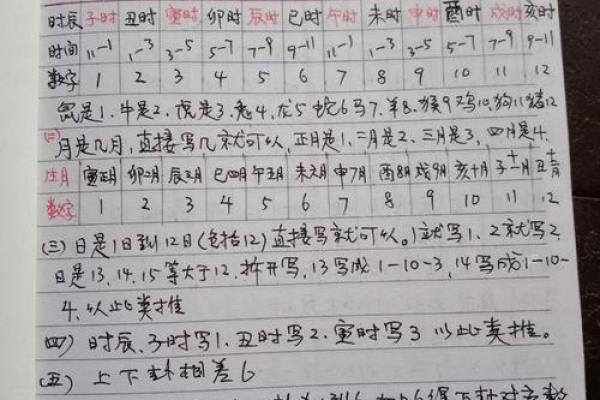 时辰 子时 丑时 寅时 卯时 辰时 巳时 午时 未时 申时 酉时 戌时 亥时
时间 11-1 1-3 3-5 5-7 7-9 9-11 11-1 1-3 3-5 5-7 7-9 9-11
数字 1 2 3 4 5 6 7 8 9 10 11 12
鼠是1.牛是2.虎是3.兔4.龙5蛇6马7.羊8.猴9鸡10.狗11猪12
(二)月是几月,直接写几就可以,正月是1.二月是2.三月是3,四月是4.
生月 寅正月 卯二月 辰三月 巳四月 午五月 未六月 申7月 酉8月 戌9月 亥十月 子十一月 丑十二月
数字 1 2 3 4 5 6 7 8 9 10 11 12
(三)日是1日到12日(包括12)直接写就可以。1就写1、2就写2
日是13,14,15等大于12.拆开写,13写成1-10-3,14写成1-10-
4.以此类推
(四)时辰.子时写1.丑时写2.寅时写3 以此类推。
(五)上下卦相差6